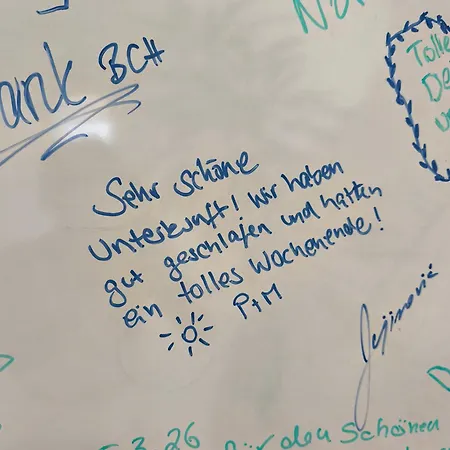 ank BCH
Tolle
De
Sehr schöne
Unterkunft! Wir haben
gut geschlafen und hatten
ein tolles Wochenende!
P+M
3.26
für den Schönen